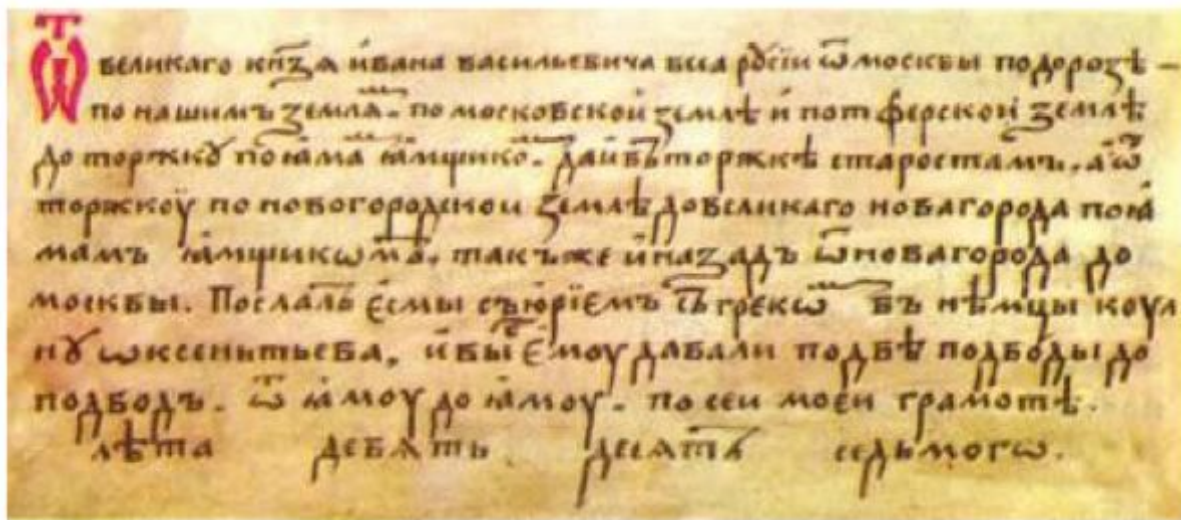 Ѿ великаго кн҃ѕѧ и҆вана васильевича всеа рꙋсїи ѿ москвы подорозѣ
по нашимъ землѧ. по московской землѣ и҆ потферской землѣ
до торжкꙋ поꙗма ꙗмщико. даи въторжкѣ старостамъ. а ѿ
торжкоу по новогородскои землѣ довеликаго новагорода поꙗ
мамъ ꙗмщикѡмъ. такъже и҆ назадъ ѿ новагорода до
москвы. Послалъ есмы съюрїемъ съ грекѡ въ нѣмцы коул
нꙋ ѡксентьева. и҆ вы е҆моу давали подвѣ подводы до
подводъ. ѿ ꙗмоу до ꙗмоу. по сеи моеи грамотѣ.
лѣта девѧть десѧтъ седьмогѡ.